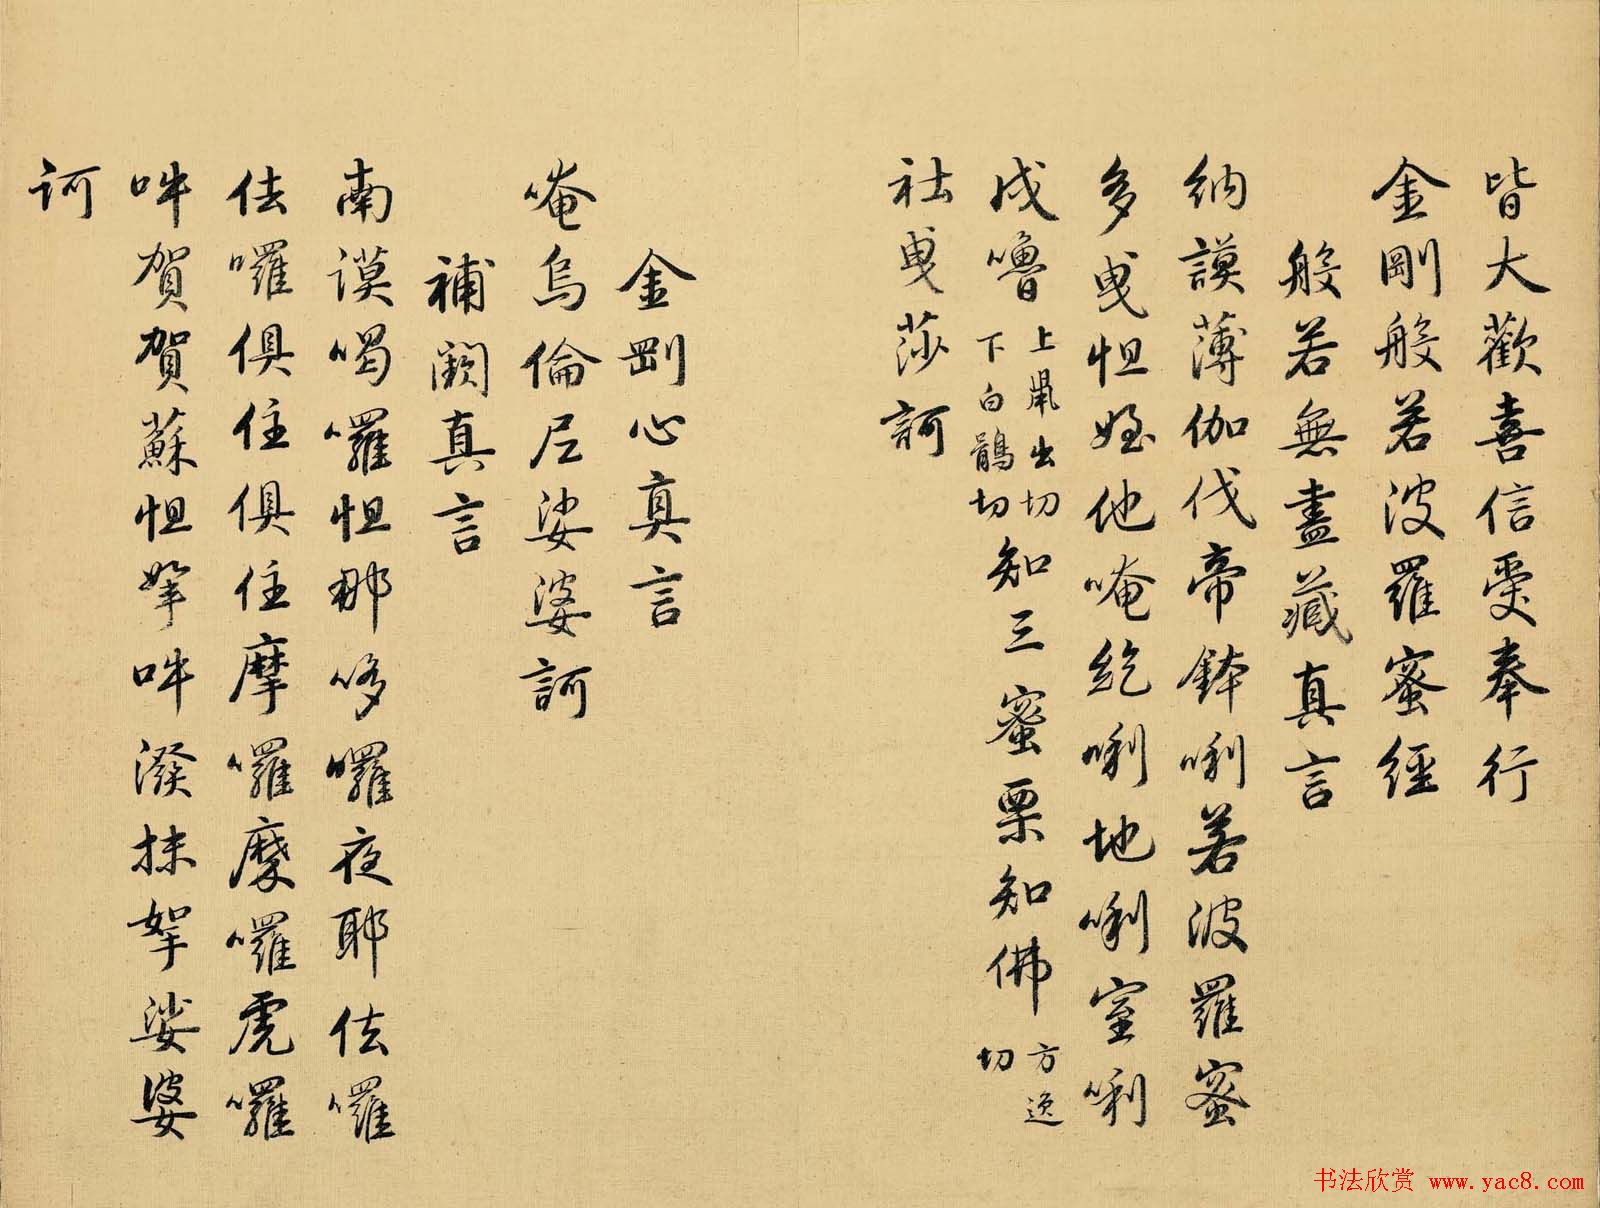 皆大歡喜信受奉行
金剛般若波羅蜜經
般若無盡藏真言
納謨薄伽伐帝鉢唎若波羅蜜
多曳怛姪他唵紇唎地唎室唎
戍嚕上聲出切下白鶻切知三蜜栗知佛方逸切
社曳莎訶
金剛心真言
唵烏倫尼娑婆訶
補闕真言
南謨喝囉怛那哆囉夜耶佉囉
佉囉俱住俱住摩囉摩囉虎囉
吽賀賀蘇怛拏吽潑抹拏娑婆
訶
书法欣赏 www.yac8.com